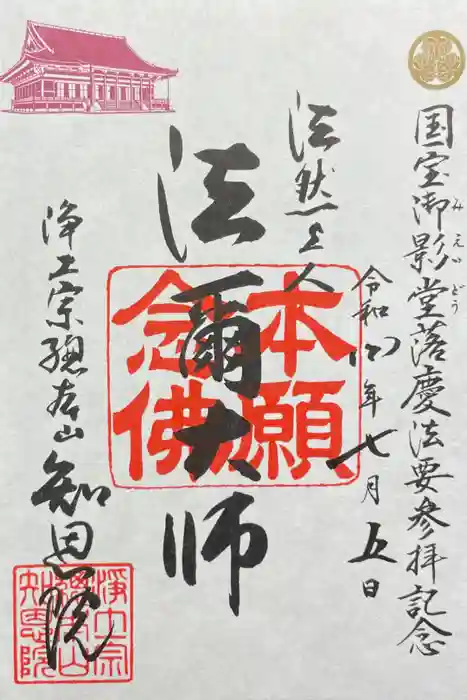 国宝御影堂落慶法要参拝記念
みえいどう
令和四年七月五日
法然上人
法爾大師
本願
念佛
浄土宗總本山
知恩院
浄土宗
總本山
知恩院